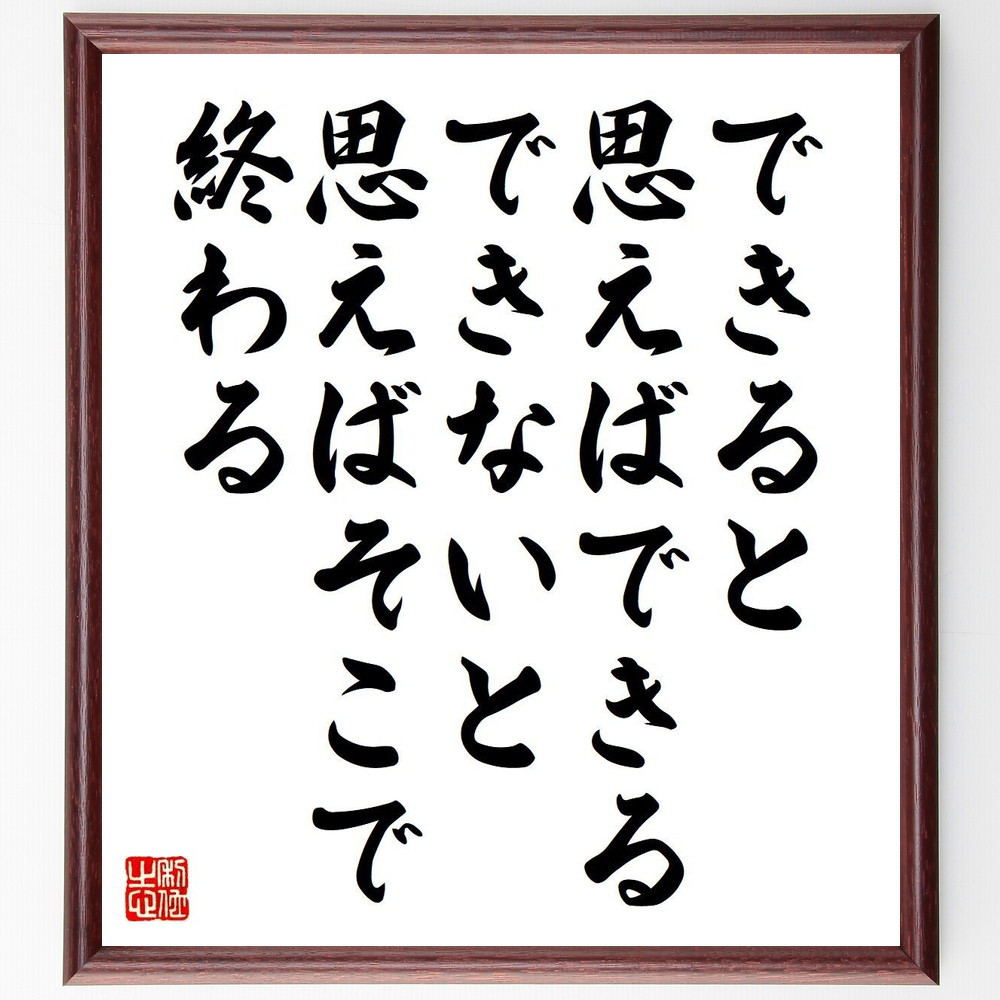 できると
思えばできる
できないと
思えばそこで
終わる